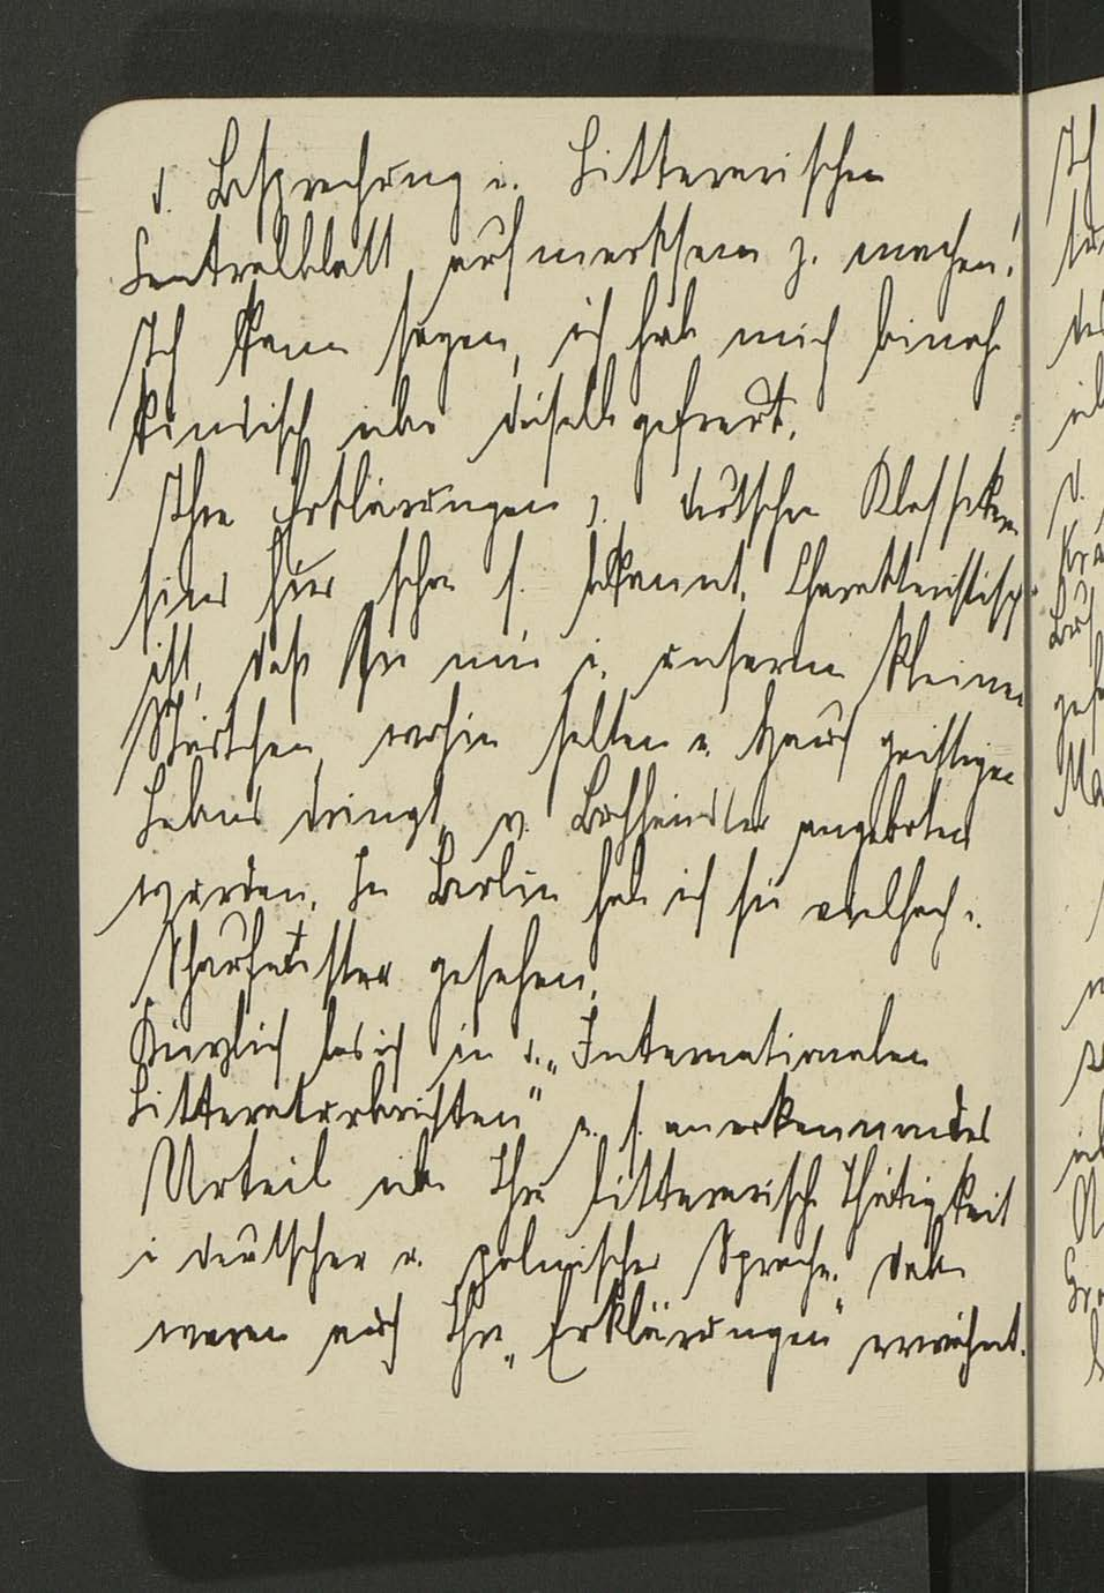 d. Besprechung i. Litterarischen
Centralblatt aufmerksam z. machen!
Ich kann sagen, ich hab mich beinah
kindisch über dieselbe gefreut.
Ihre Erklärungen z. deutschen Klassikern
sind hier schon s. bekannt. Charakteristisch
ist, daß Sie mir i. unserm kleinen
Städtchen, wohin selten e. Hauch geistigen
Lebens dringt, v. Buchhändler angeboten
wurden. In Berlin hab ich sie vielfach i.
Schaufenster gesehen.
Kürzlich las ich in d. „Internationalen
Litteraturberichten" e. s. anerkennendes
Urteil über Ihre litterarische Thätigkeit
i deutscher u. polnischer Sprache. Dabei
waren auch Ihre „Erklärungen" erwähnt.